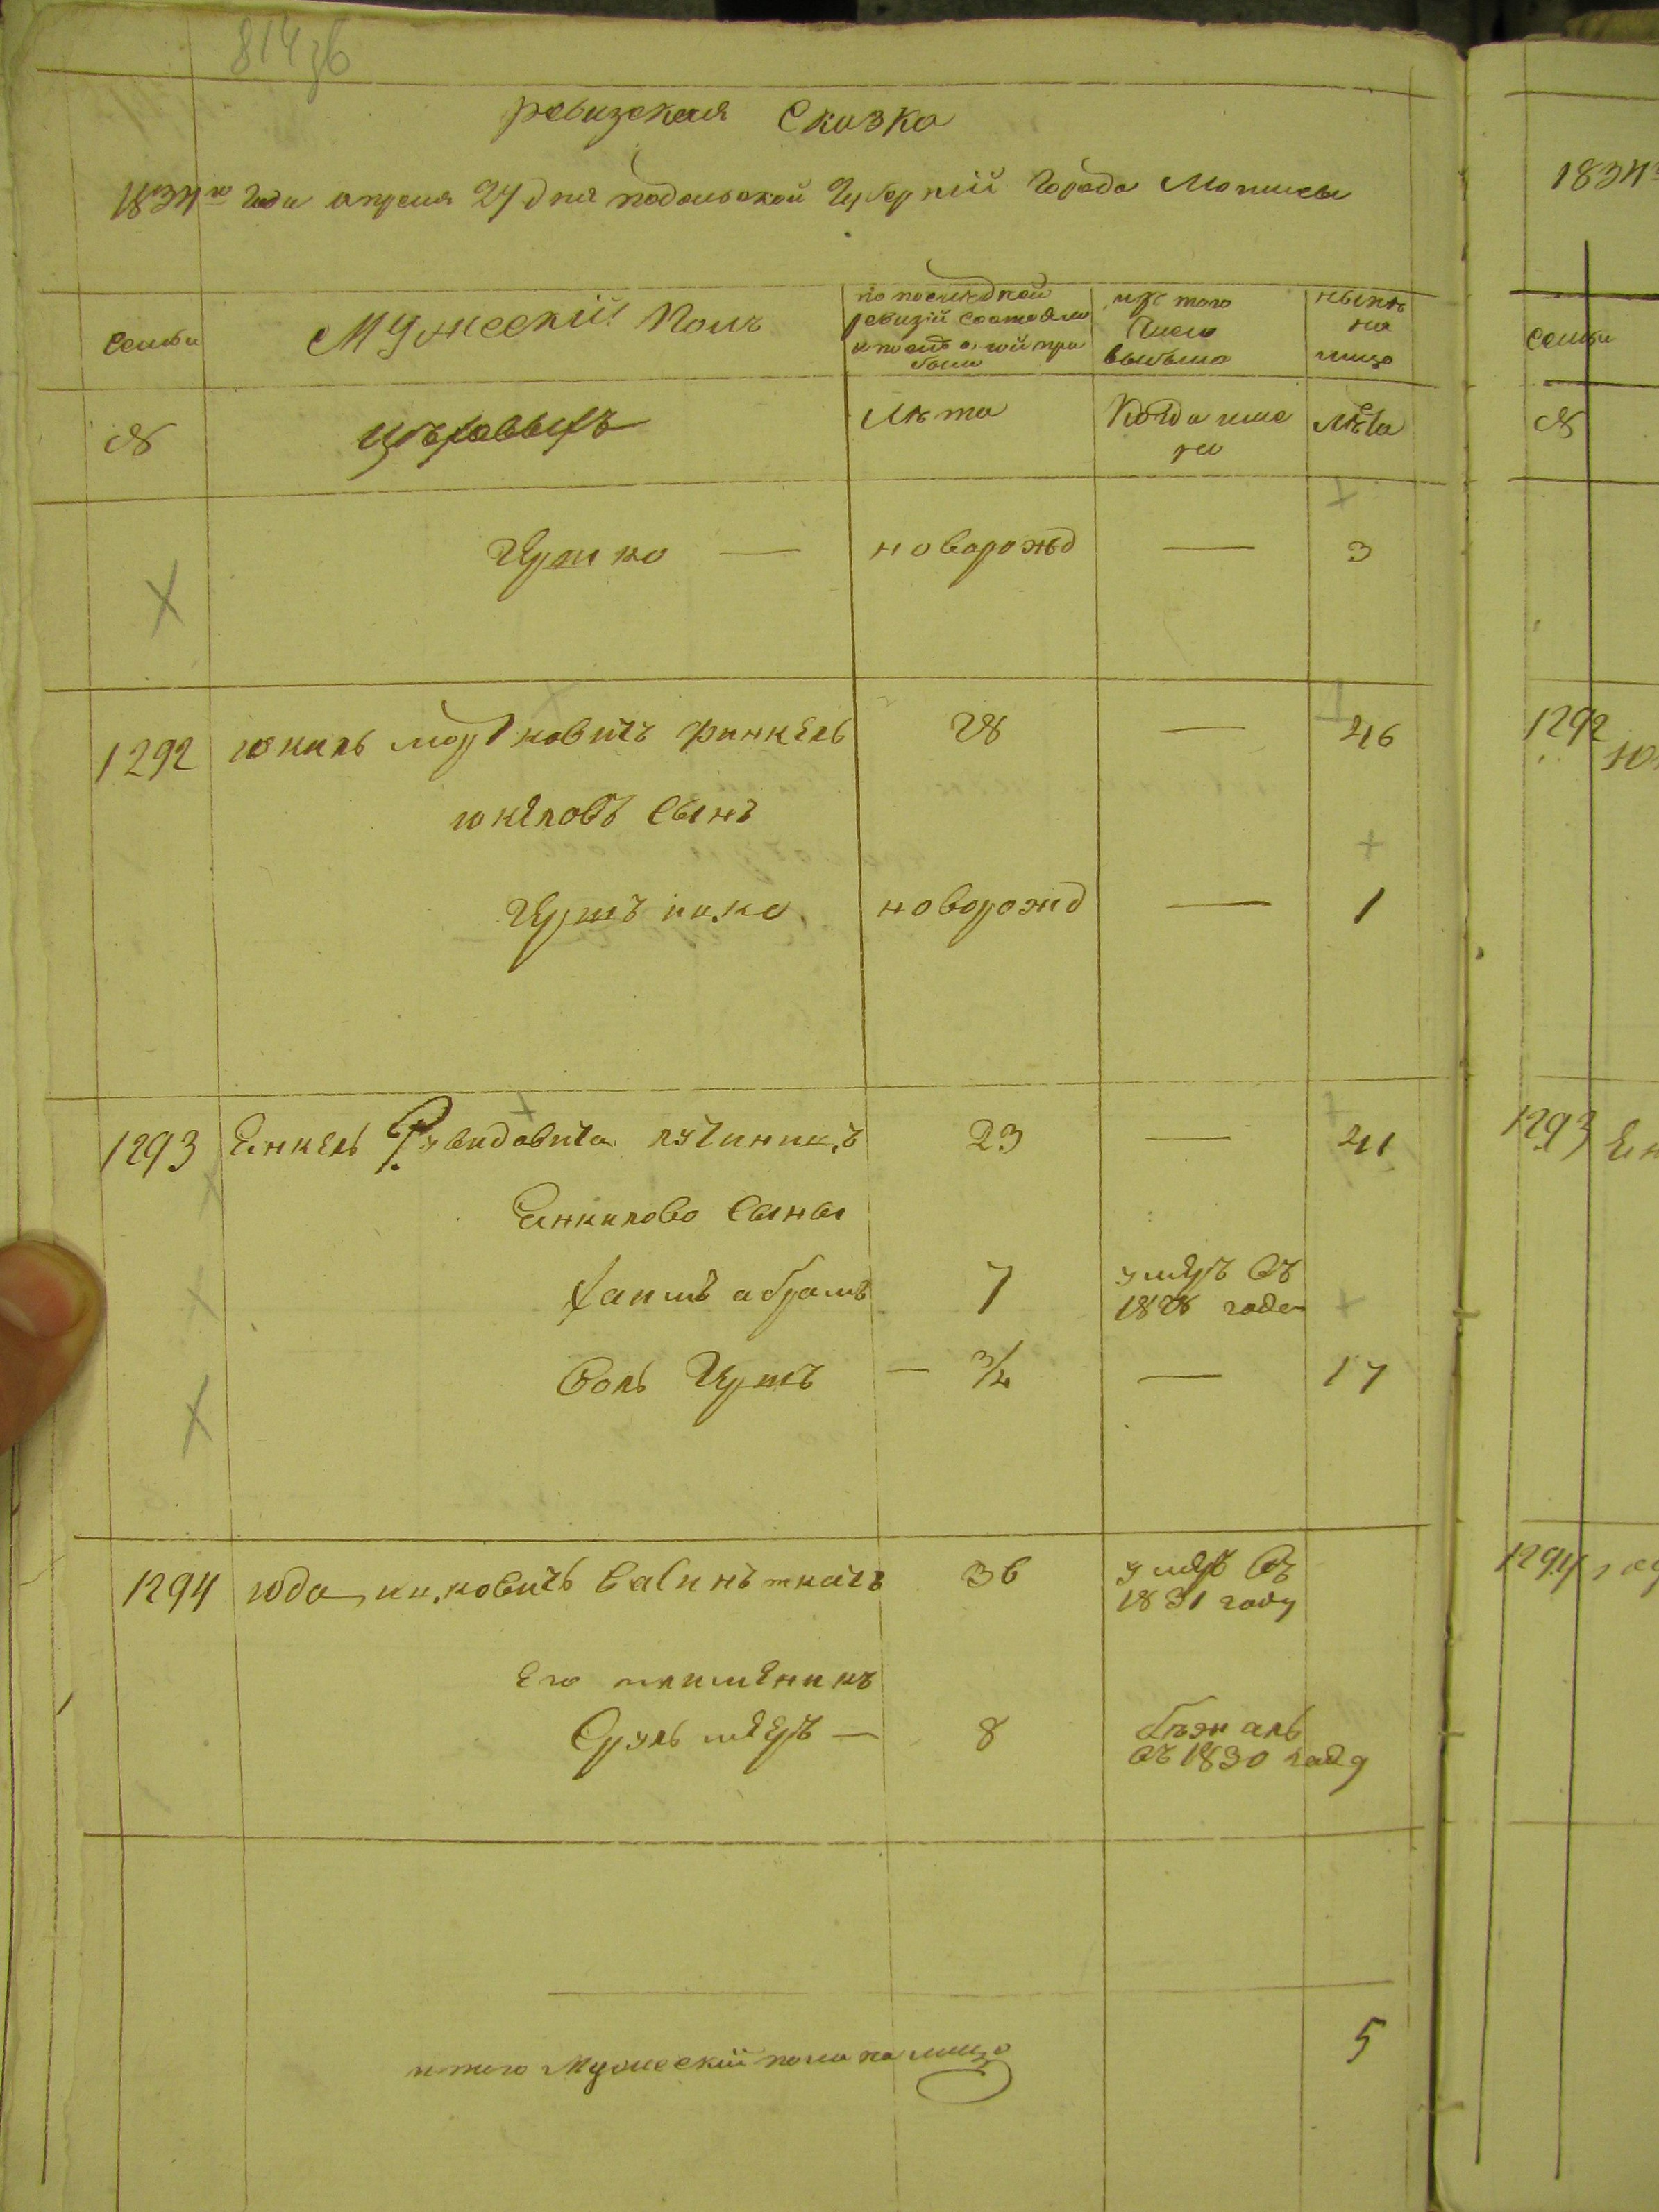 814
ревизская Сказка
1834го Года апреля 27 дня подольской Губернии города
Семьи
Мужеский Полъ
по последной ревизии состояло и после оной при были
изъ того числа выбыло
ныне на лицо
№
Лѣта
Когда име но
Лѣта
Гершко — новорожд — 3
1292 юкель мортковичъ финкель 28 — 46
юкеловъ Сынъ
Гершъ ицко новорожд — 1
1293 Енкель лучиникъ 23 — 41
Енкилово Сыны
хаимъ абрамъ 7 умеръ въ 1828 годе
Воль Гершъ — 3/4 — 17
1294 юда ицковичъ 36 умеръ въ 1831 году
Его плименикъ
Сруль мееръ — 8 бѣжаль въ 1830 году
итого Мужеский пола на лицо 5
1834
Семьи
№
1292 Ю
1293 Ен
1294